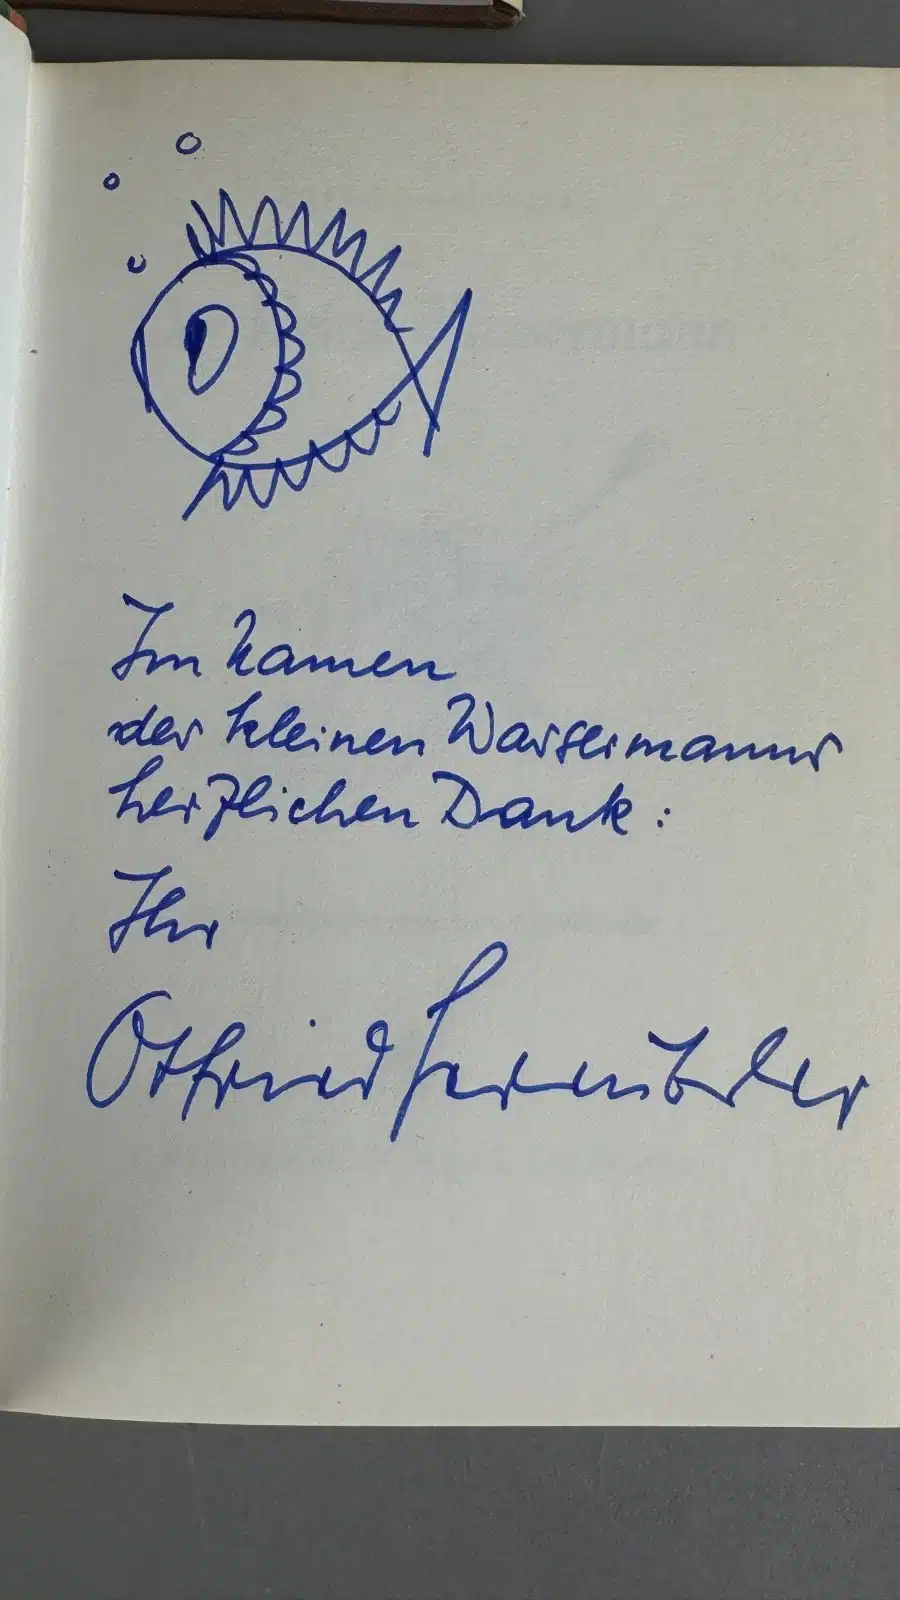 Im Namen
des kleinen Wassermanns
herzlichen Dank:
Ihr
Otfried Preußler